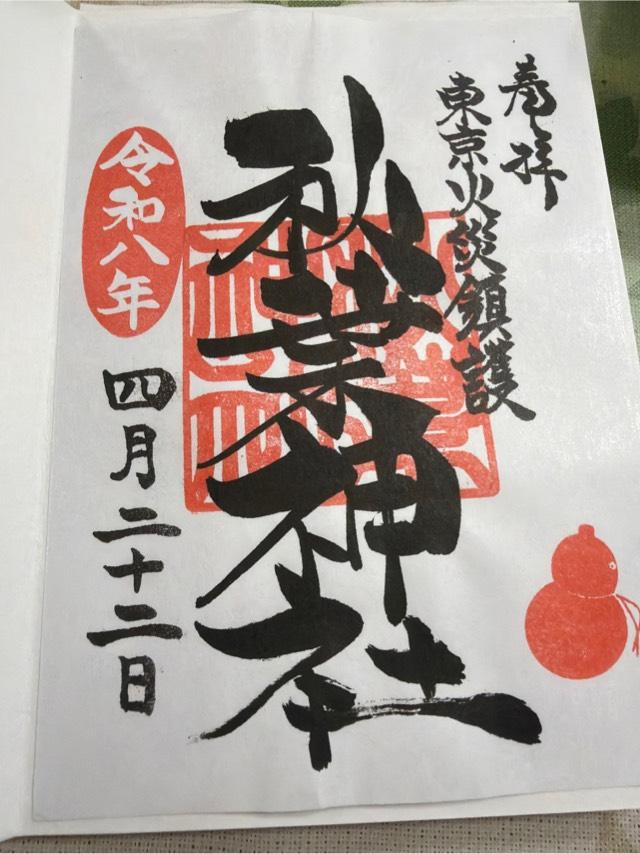 奉拝
東京火災鎮護
秋葉神社
令和八年
四月二十二日